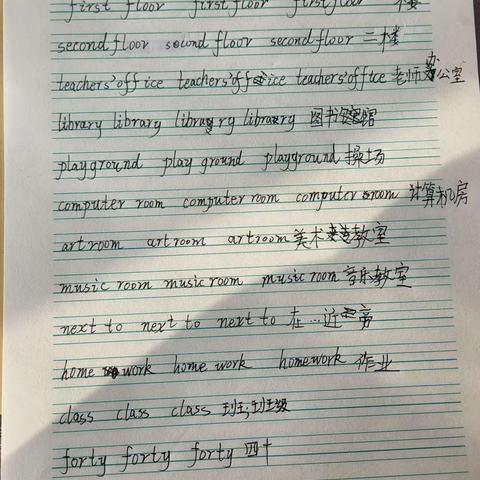 first floor first floor first floor 一楼
second floor second floor second floor 二楼
teachers' office teachers' office teachers' office 老师办公室
library library library library 图书馆
playground play ground playground 操场
computer room computer room computer room 计算机房
art room art room art room 美术教室
music room music room music room 音乐教室
next to next to next to 在…近旁
home work home work homework 作业
class class class 班;班级
forty forty forty 四十